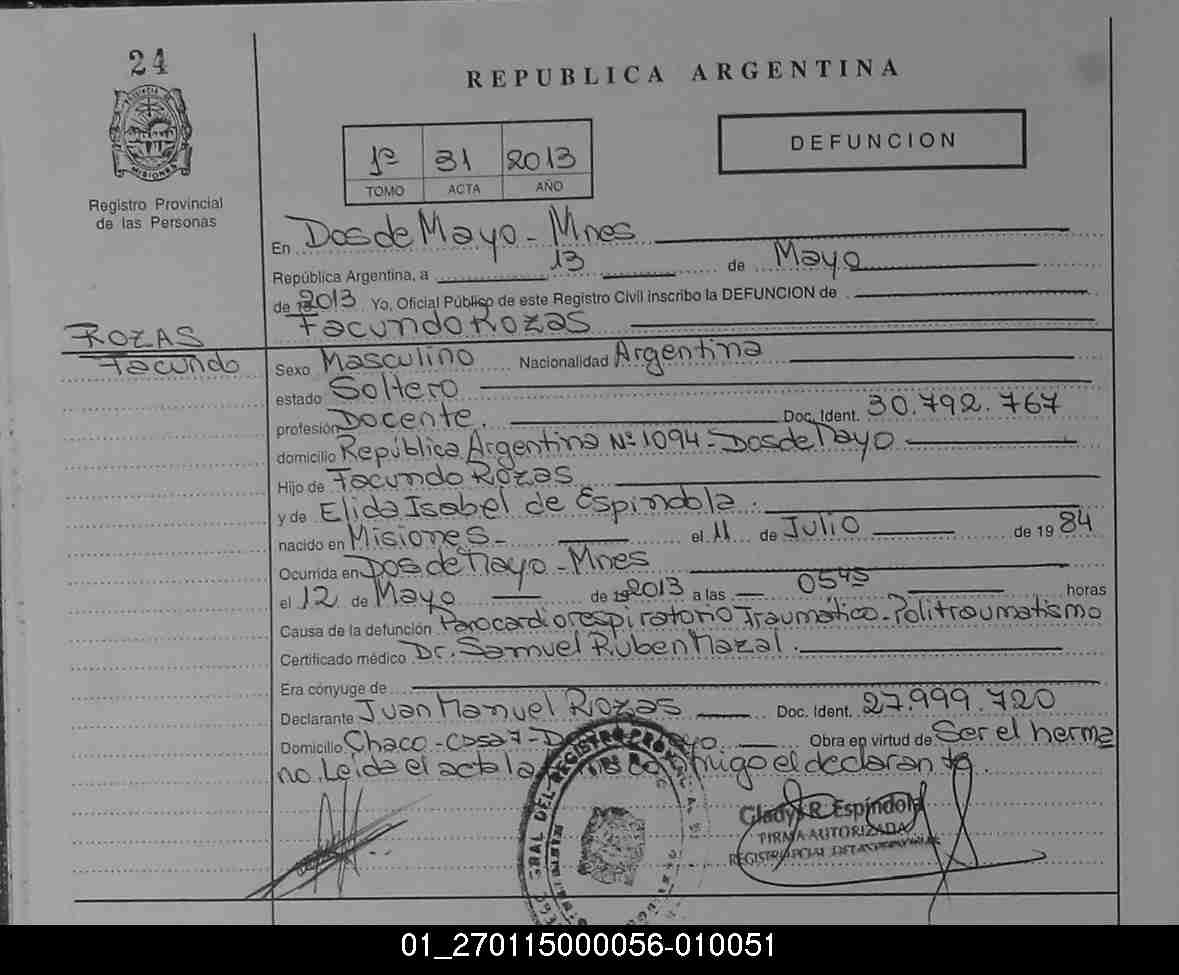 24
REPUBLICA ARGENTINA
DEFUNCION
1º 31 2013
TOMO ACTA AÑO
MISIONES
Registro Provincial
de las Personas
En Dos de Mayo - Mnes
República Argentina, a 13 de Mayo
de 2013 Yo, Oficial Público de este Registro Civil inscribo la DEFUNCION de
Facundo Rozas
ROZAS
Facundo
Sexo Masculino Nacionalidad Argentina
estado Soltero
profesión Docente. Doc. Ident. 30.792.767
domicilio República Argentina Nº 1094 - Dos de Mayo
Hijo de Facundo Rozas
y de Elida Isabel de Espindola.
nacido en Misiones - el 11 de Julio de 1984
Ocurrida en Dos de Mayo - Mnes
el 12 de Mayo de 2013 a las 0545 horas
Causa de la defunción Parocardiorespiratorio Traumático - Politraumatismo
Certificado médico Dr. Samuel Ruben Mazal.
Era cónyuge de
Declarante Juan Manuel Rozas Doc. Ident. 27.999.720
Domicilio Chaco - Casa 7 - Obra en virtud de Ser el herma
no. Leida el acta la conmigo el declarante.
GRAL DEL REGISTRO PRO
Gladys R. Espíndola
FIRMA AUTORIZADA
01_270115000056-010051